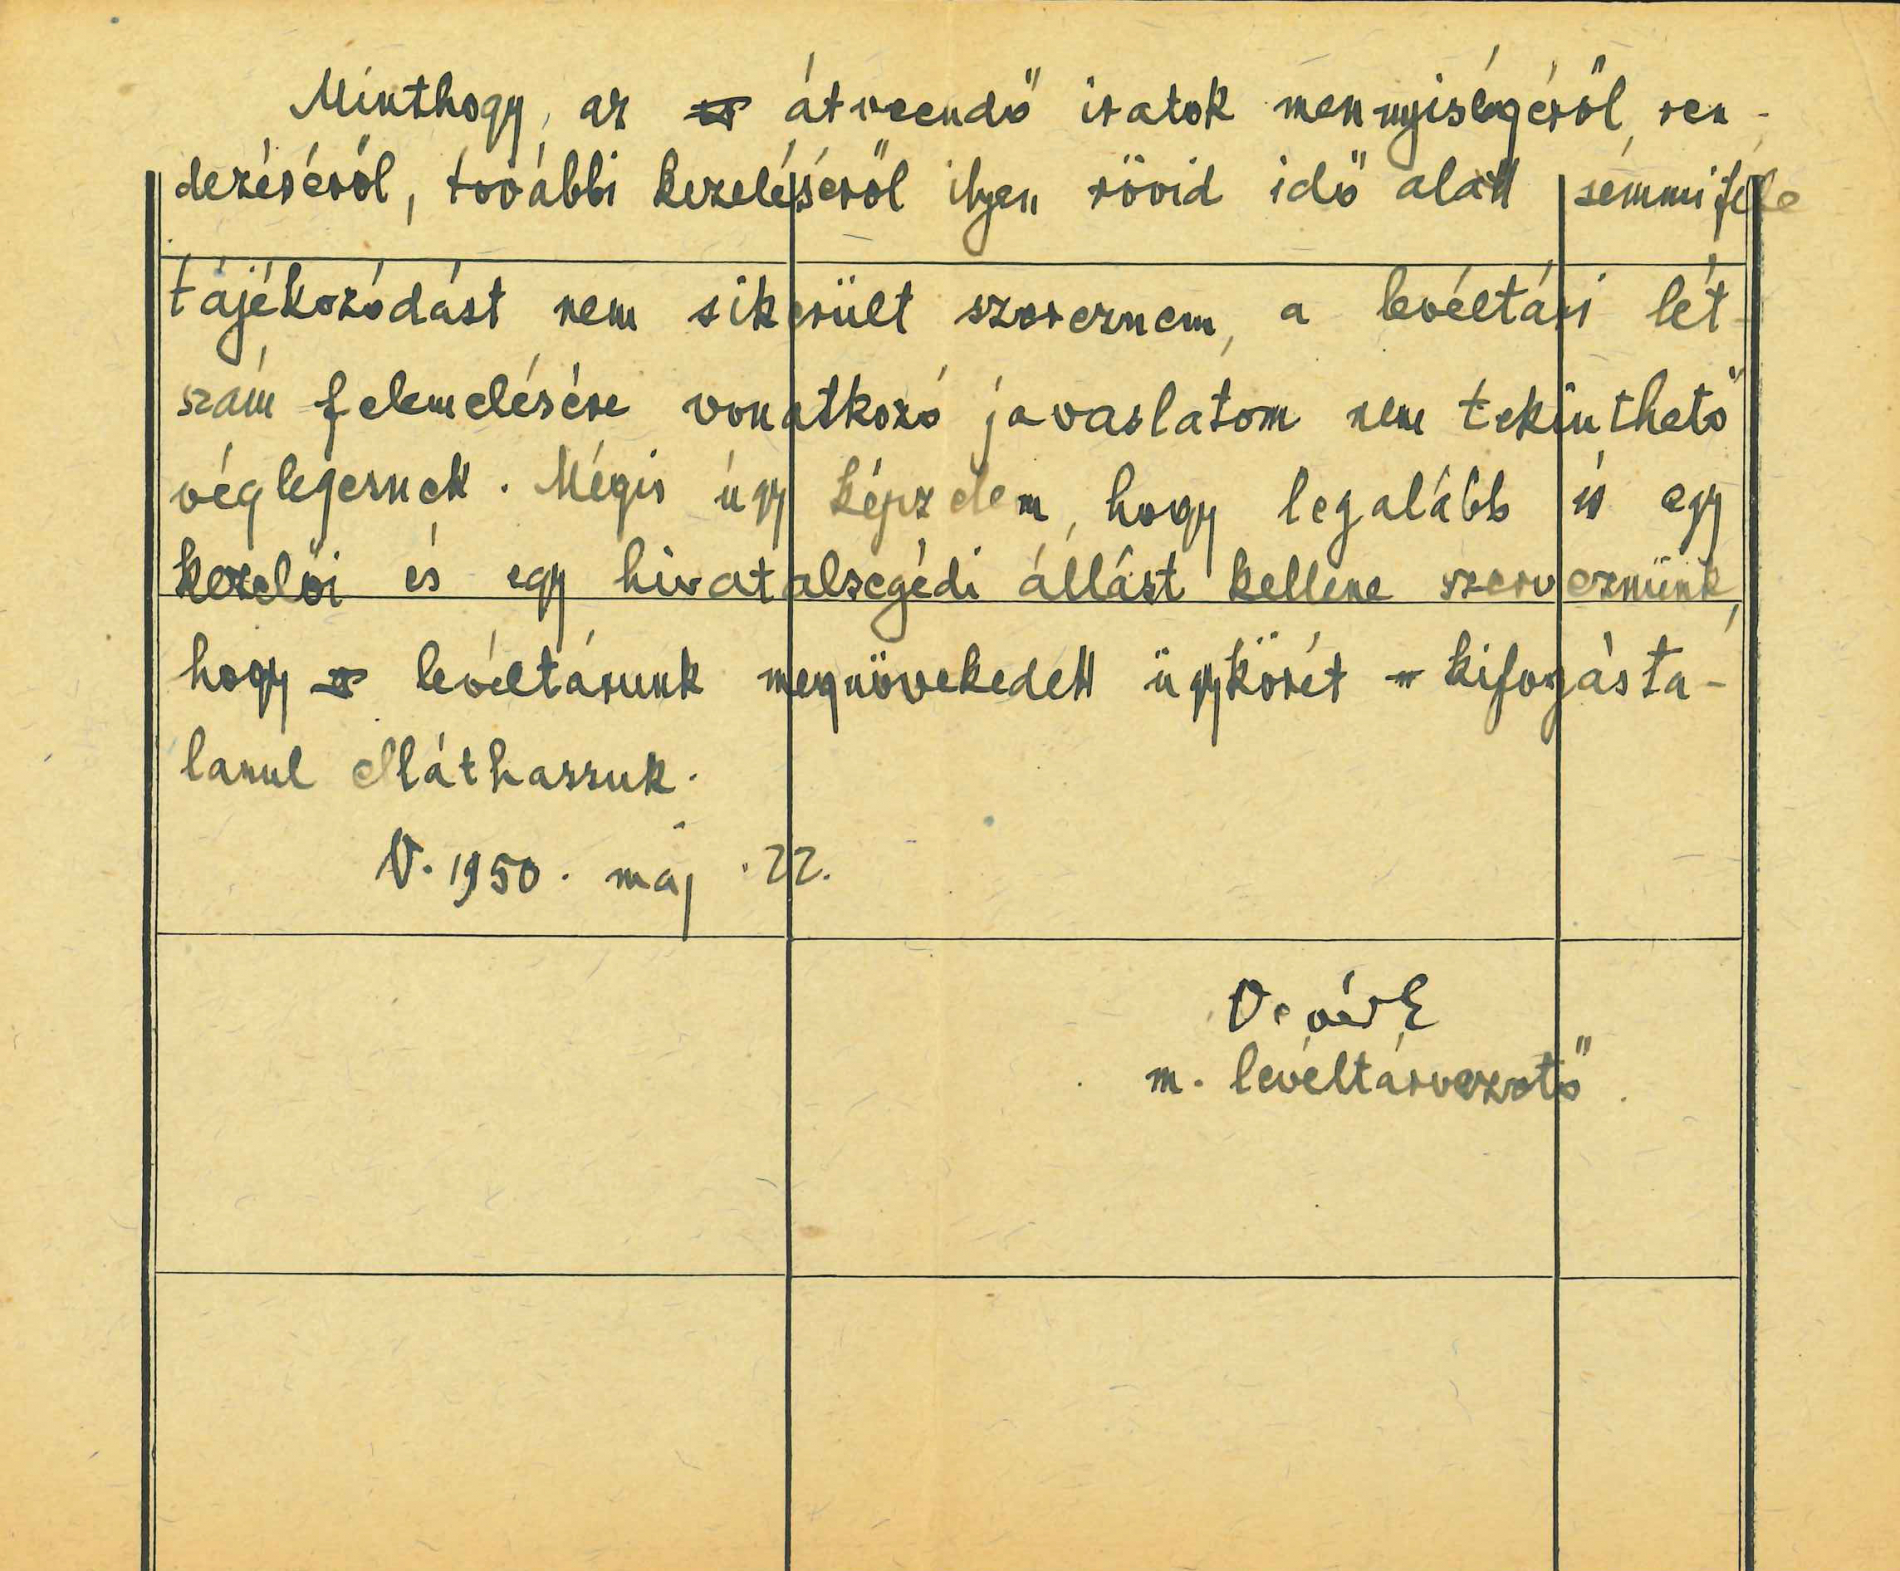 Minthogy, az átveendő iratok mennyiségéről, ren-
dezéséről, további kezeléséről ilyen rövid idő alatt semmiféle
tájékozódást nem sikerült szereznem, a levéltári lét-
szám felemelésére vonatkozó javaslatom nem tekinthető
véglegesnek. Mégis úgy képzelem, hogy legalább is egy
kezelői és egy hivatalsegédi állást kellene szerveznünk,
hogy levéltárunk megnövekedett ügykörét kifogásta-
lanul elláthassuk.
V. 1950. máj. 22.
m. levéltárvezető